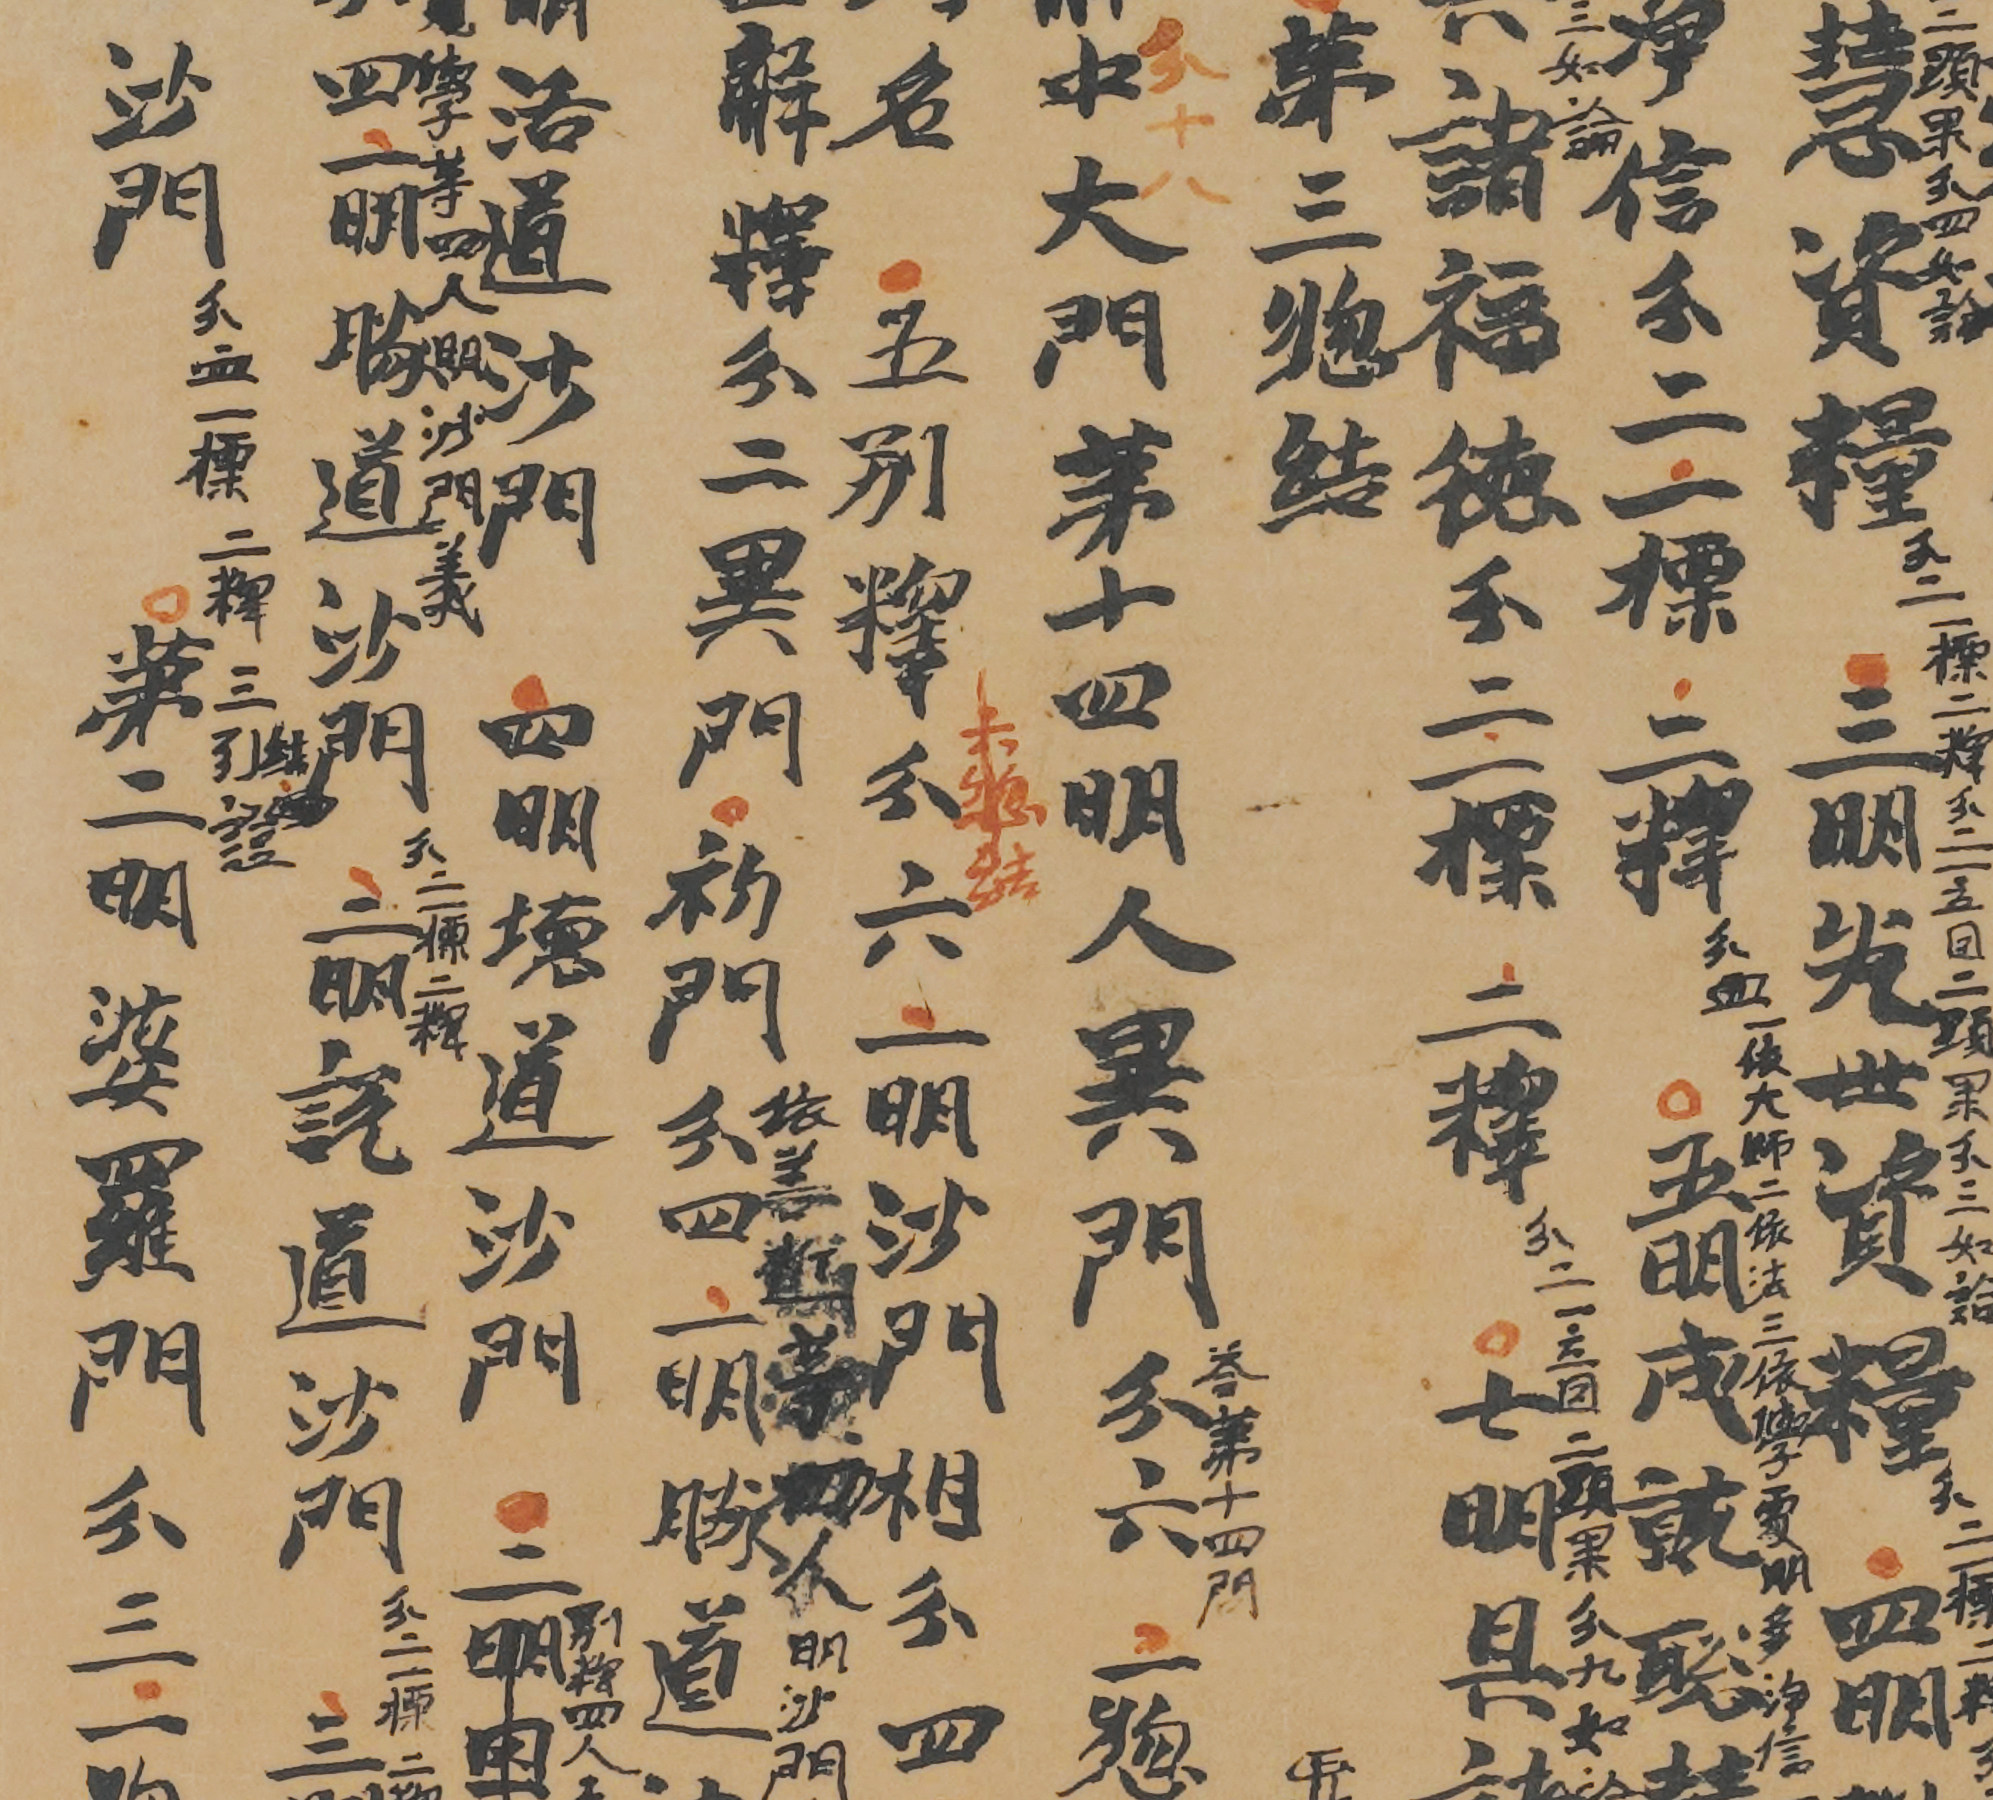 二顕果分四如論
慧資糧
分二一標二釋分二一立因二顕果分三如論
三明先世資糧
分二一標二釋
四明
淨信分二一標二釋
分四一依大師二依法三依學處明多淨信
五明成就聡慧
三如論
六諸福徳分二一標二釋
分二一立因二顕果分九如論
七明具諸
第三惣結
分十八
中大門第十四明人異門分六
答第十四門
一惣
名
五别釋分六一明沙門相分四
未惣結
解釋分二異門
初門分四一明勝道
依善逝等四人明沙門
活道沙門
四明壊道沙門
二明
别釋四人
學等四人明沙門義
四一明勝道沙門
分二一標二釋
二明説道沙門
分二一標二
三
沙門
分四一標二釋三引證
結
第二明婆羅門分三一